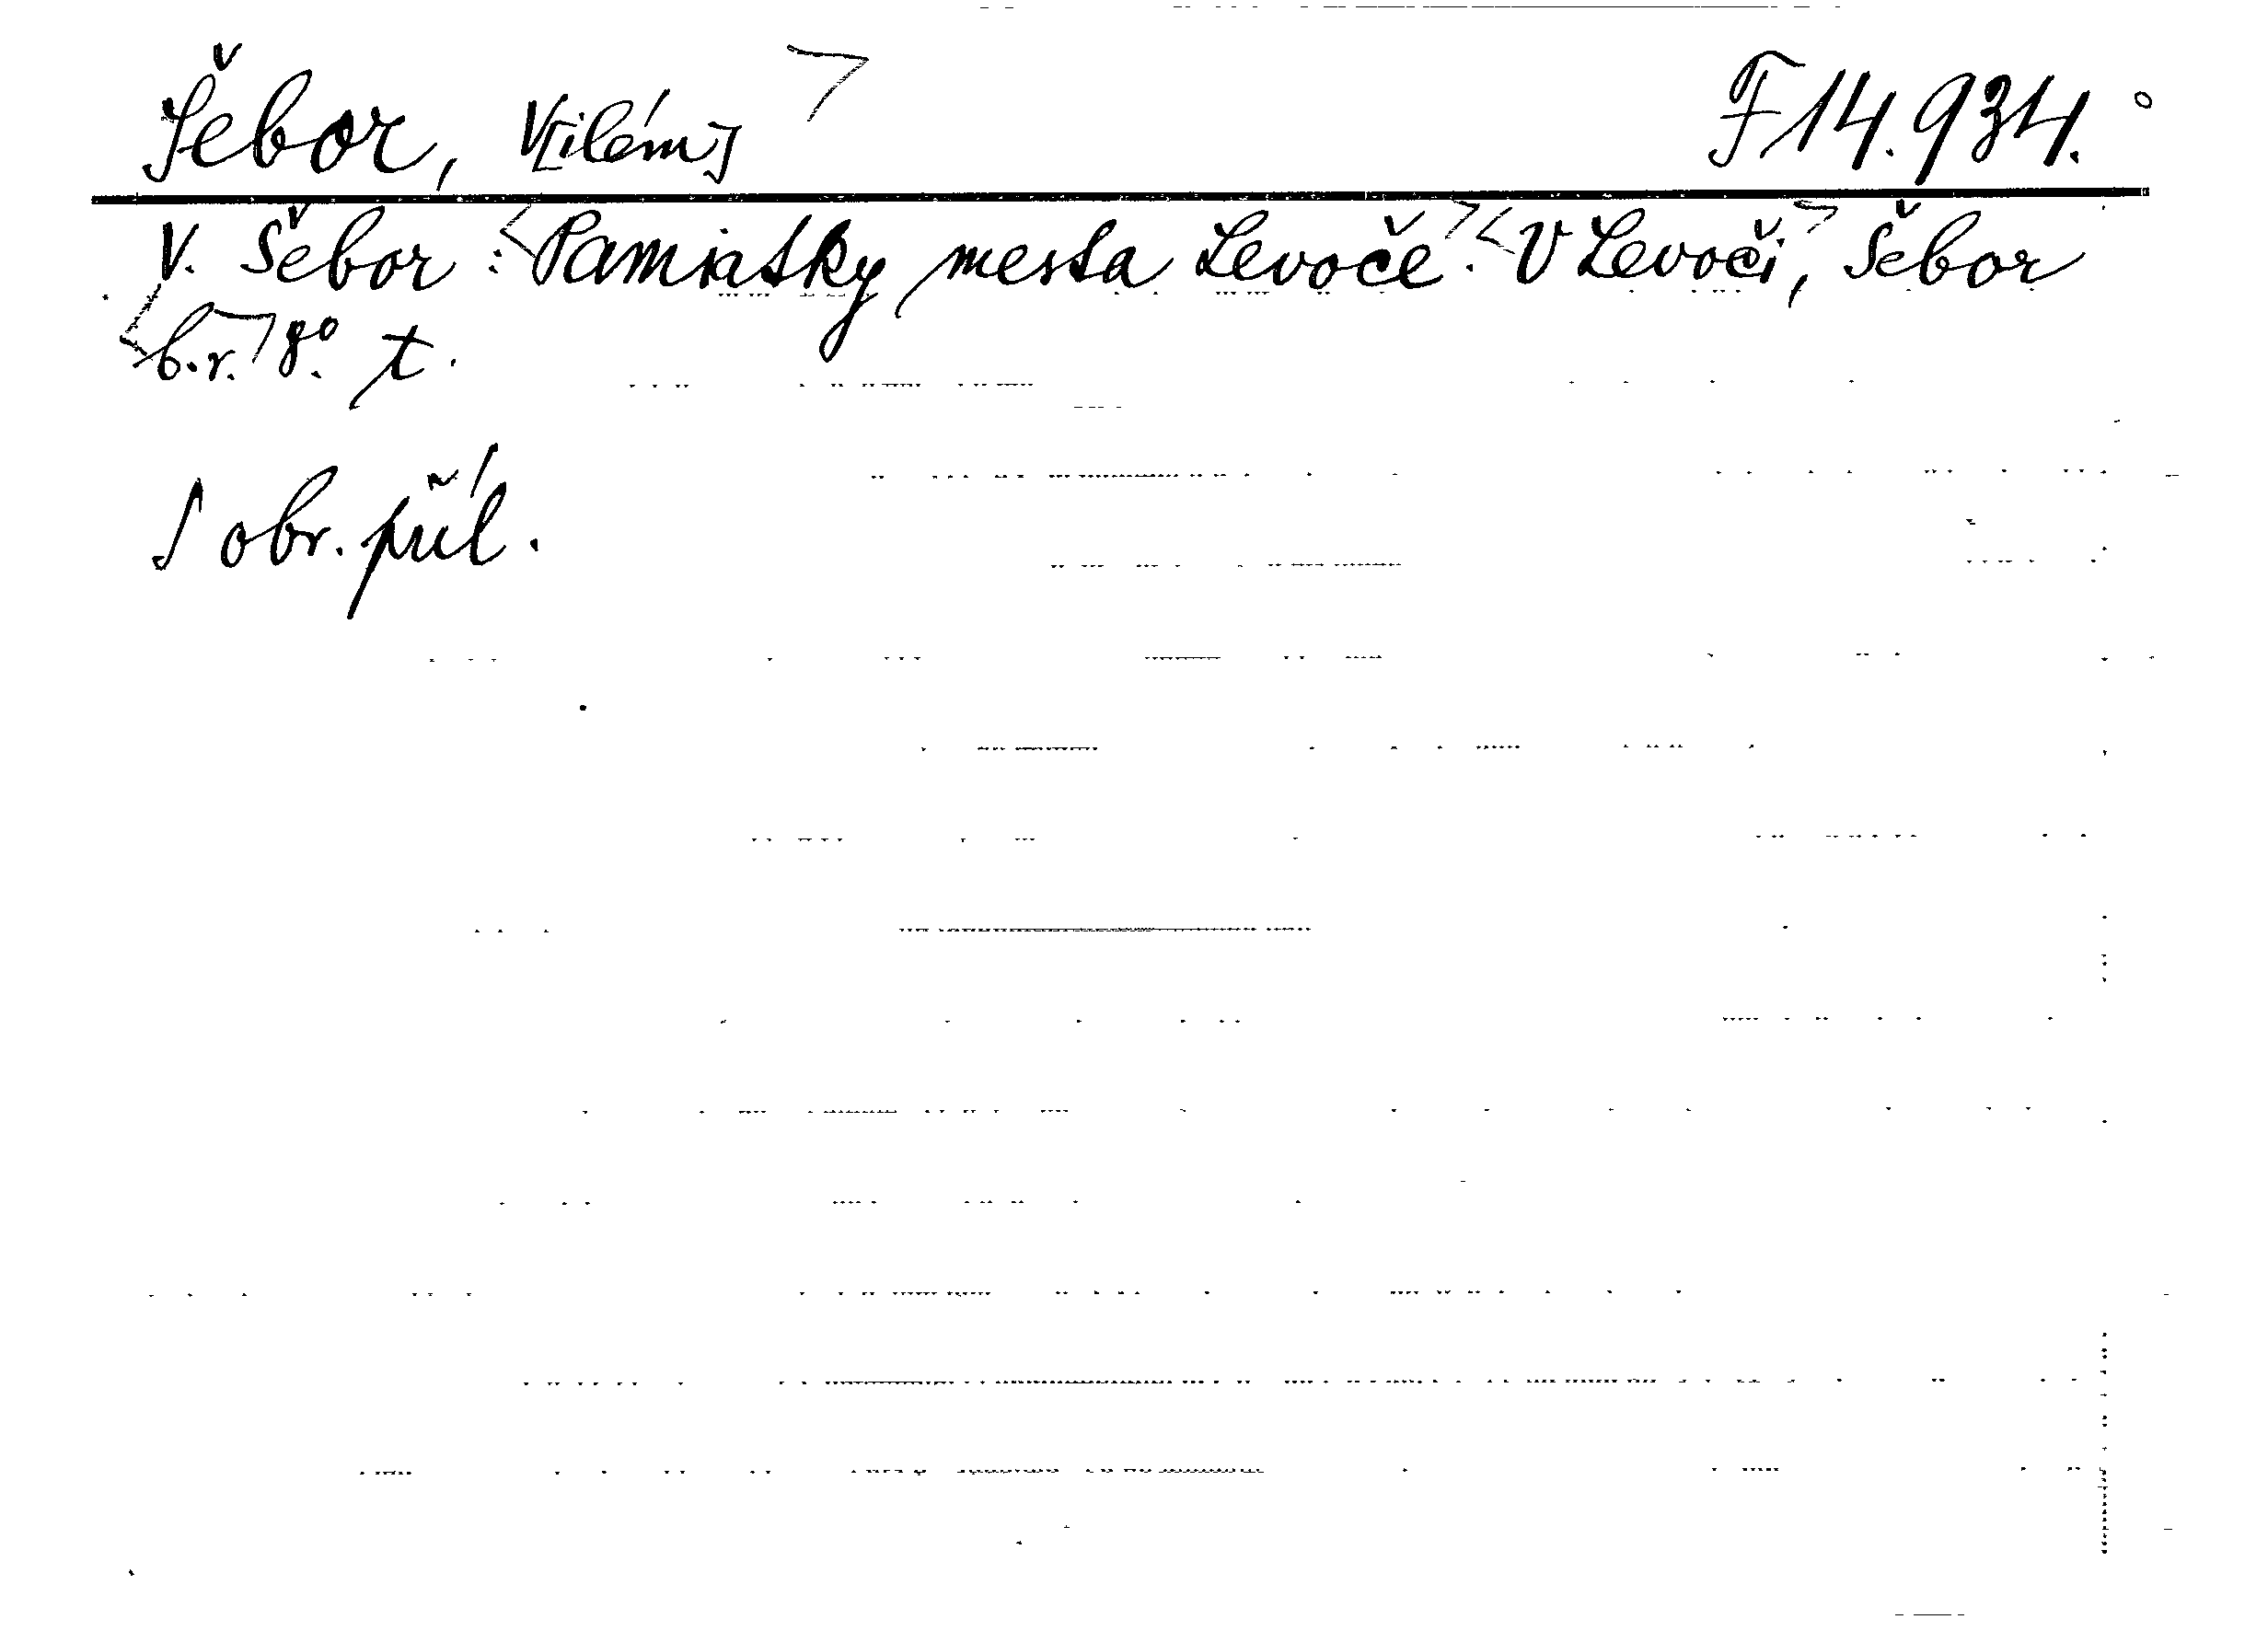 Šebor, V[ilém] F 14.934.°
V. Šebor: Pamiatky mesta Levoče. V Levoči, Šebor
b.r. 8°. t.
S obr. příl.